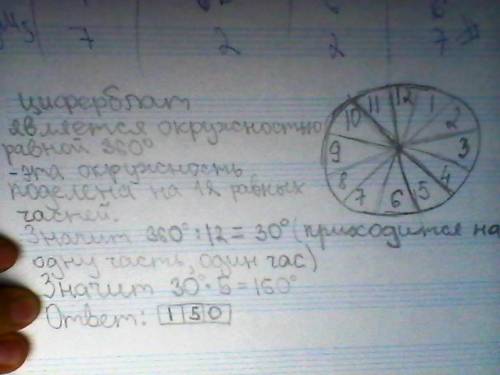 7 2 2 7
Циферблат
является окружностью
равной 360°
-эта окружность
поделена на 12 равных
частей.
Значит 360°:12=30° (приходится на
одну часть, один час)
Значит 30°·5=150°
Ответ: 150
12
11 1
10 2
9 3
8 4
7 5
6